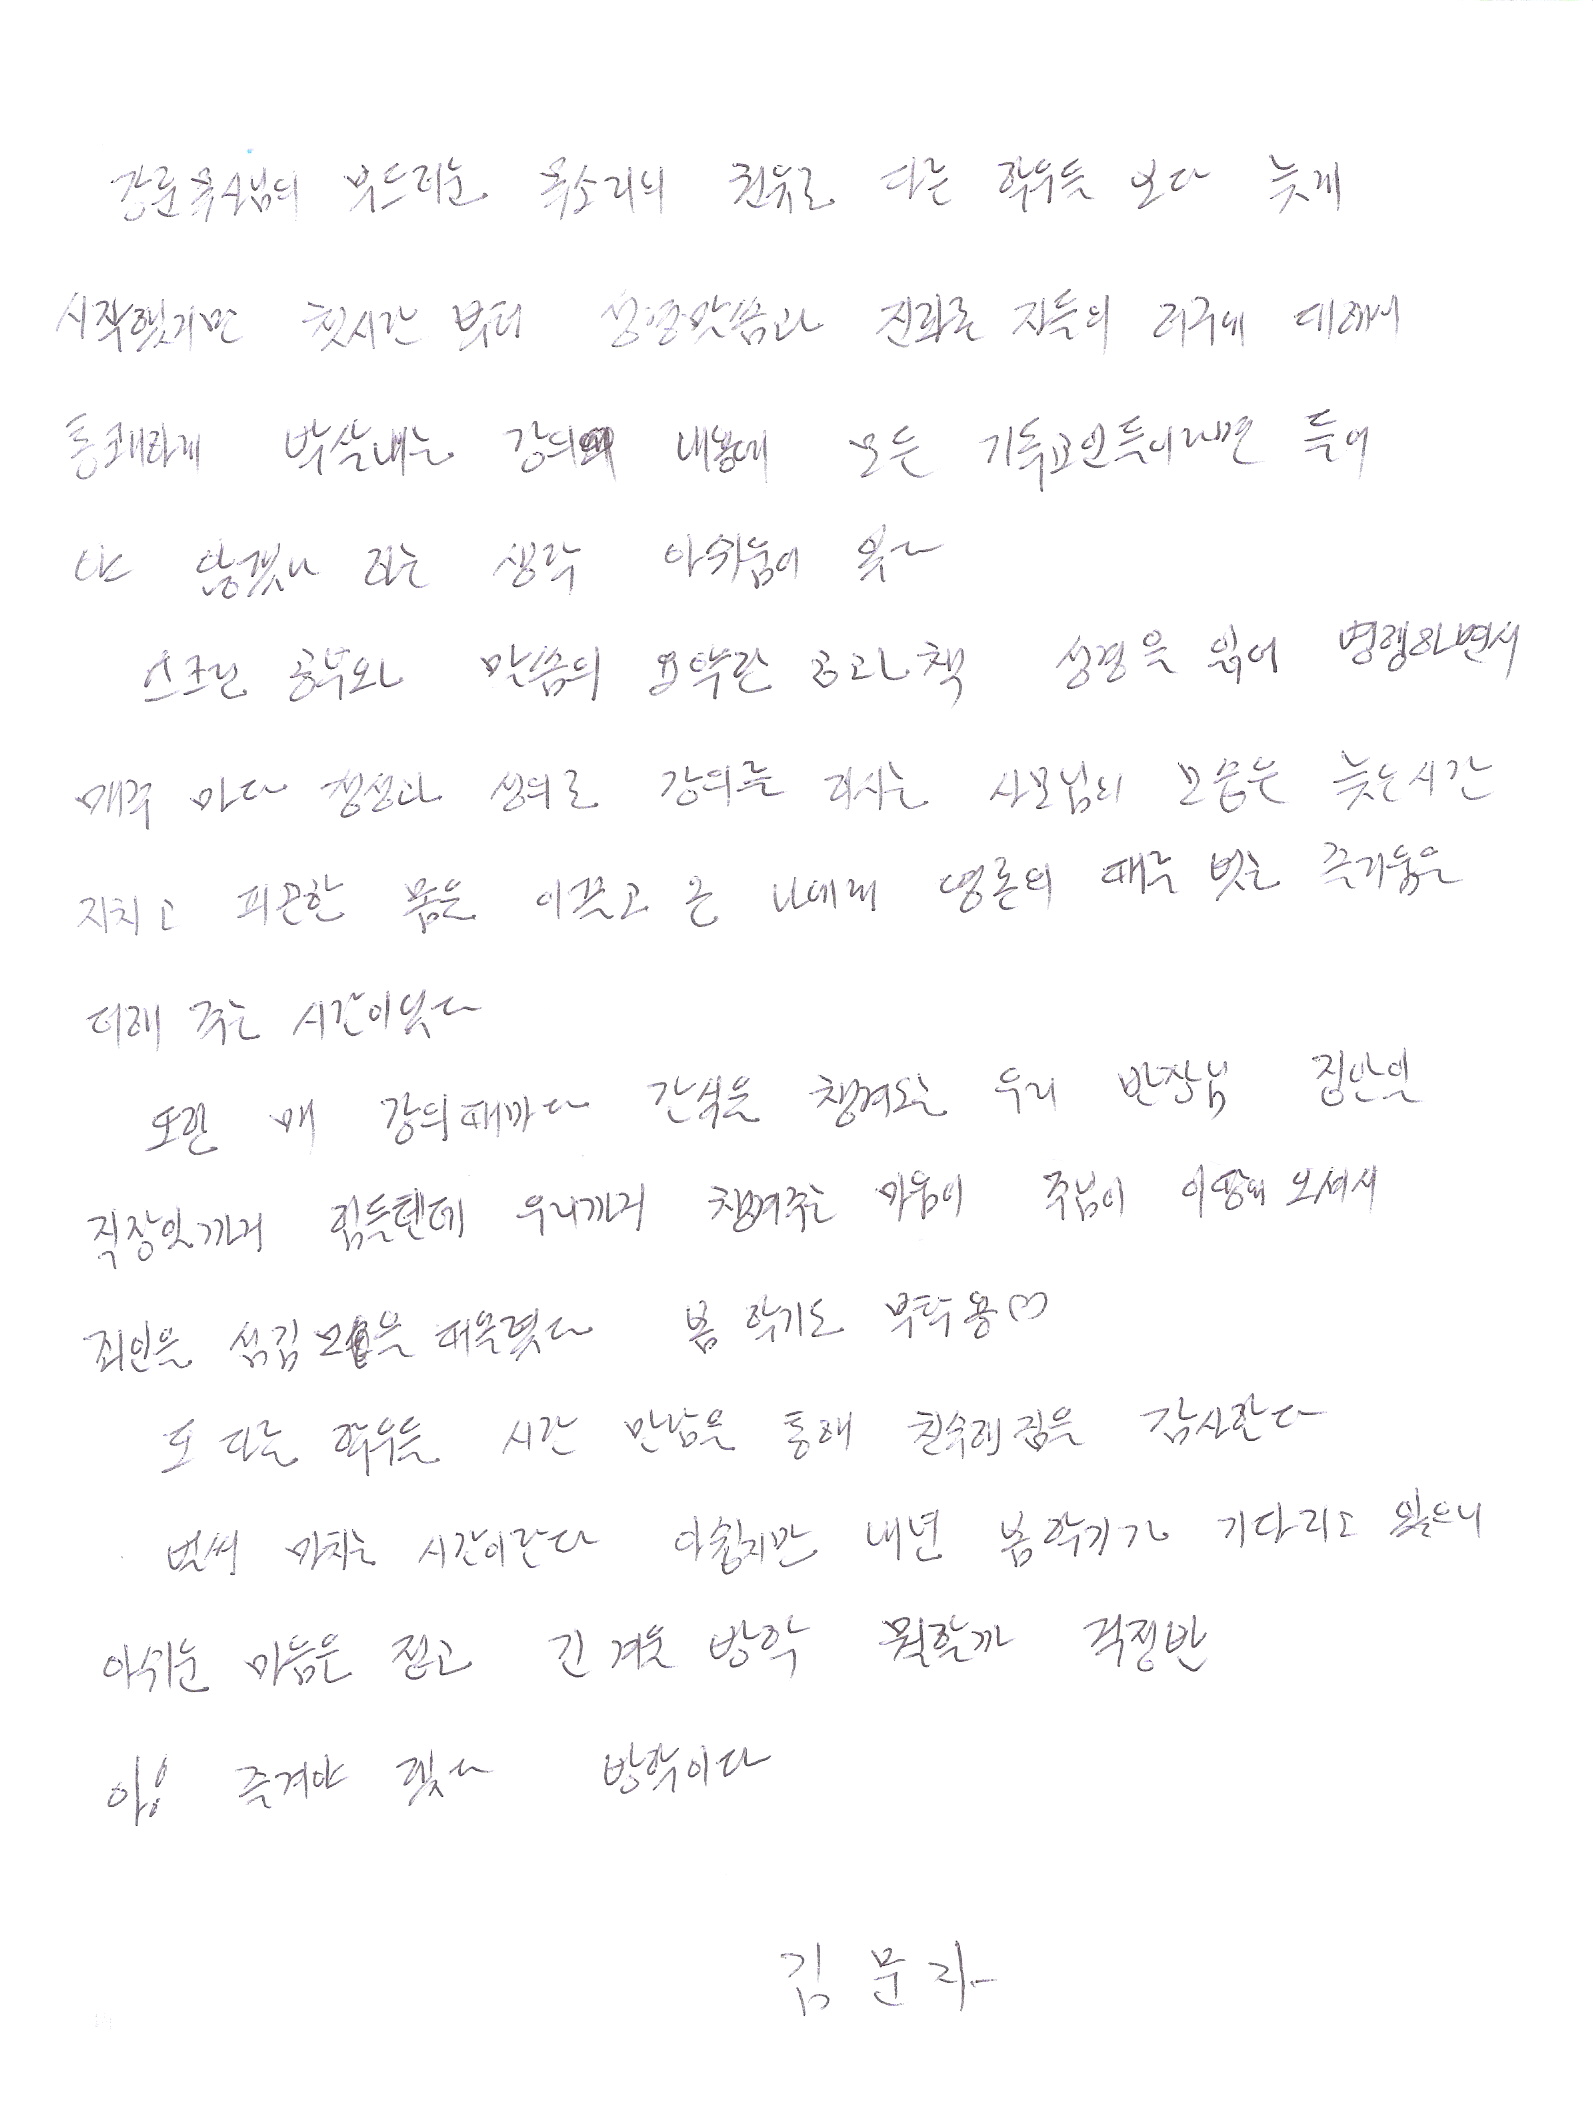 강훈목사님의 부드러운 목소리의 권유로 다른 학우들 보다 늦게
시작했지만 첫시간 부터 성경말씀과 진화론 자들의 허구에 대해서
통쾌하게 박살내는 강의의 내용에 모든 기독교인들이라면 들어
야 않겠나 하는 생각 아쉬움이 있다
스크린 공부와 말씀의 요약한 공과책 성경을 읽어 병행하면서
매주 마다 정성과 성의로 강의를 하시는 사모님의 모습은 늦는시간
지치고 피곤한 몸을 이끌고 온 나에게 영혼의 때를 벗는 즐거움을
더해 주는 시간이었다
또한 매 강의때마다 간식을 챙겨오는 우리 반장님 집안일
직장일까지 힘들텐데 우리까지 챙겨주는 마음이 주님이 이땅에 오셔서
죄인을 섬김 모습을 떠올렸다 봄 학기도 부탁용♡
또 다른 학우들 시간 만남을 통해 친숙해짐을 감사한다
벌써 마치는 시간이란다 아쉽지만 내년 봄학기가 기다리고 있으니
아쉬운 마음은 접고 긴 겨울 방학 뭐할까 걱정반
아! 즐겨야 겠다 방학이다
김문자